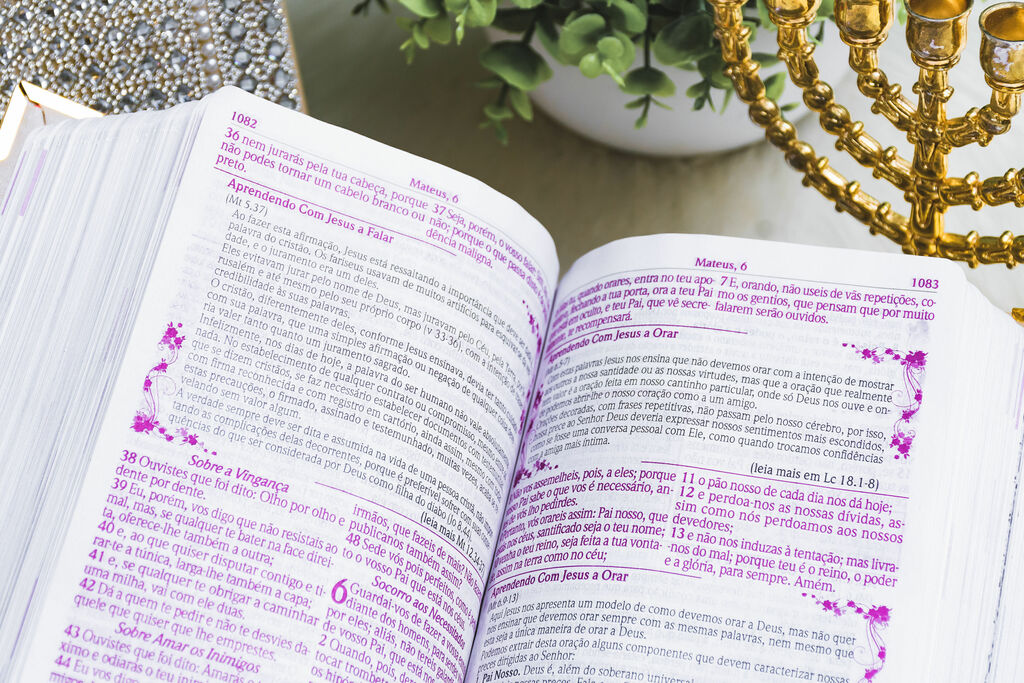 1082
Mateus, 6
36 nem jurarás pela tua cabeça, porque
não podes tornar um cabelo branco ou
preto.
37 Seja, porém, o vosso falar:
não; porque o que passa
dência maligna.
Aprendendo Com Jesus a Falar
(Mt 5.37)
Ao fazer esta afirmação, Jesus está ressaltando a importância que deve
palavra do cristão. Os fariseus usavam de muitos artifícios para dar
dade, e o juramento era um deles.
Eles evitavam jurar pelo nome de Deus, mas juravam pelo Céu, pela Terra,
rusalém e até mesmo pelo seu próprio corpo (v 33-36), com a intenção de
credibilidade às suas palavras.
O cristão, diferentemente deles, conforme Jesus ensinava, devia
com sua palavra, que uma simples afirmação ou negação de
ria valer tanto quanto um juramento sagrado.
Infelizmente, nos dias de hoje, a palavra do ser humano não vale
nada. No estabelecimento de qualquer contrato ou compromisso, mesmo
que se dizem cristãos, se faz necessário estabelecer documentos
com firma reconhecida e com registro em cartório, ainda assim, mesmo com
estas precauções, o firmado, assinado e testemunhado, muitas vezes, acaba
velando sem valor algum.
A verdade sempre deve ser dita e assumida na vida de uma pessoa cristã,
tando as complicações delas decorrentes, porque é preferível sofrer com
quências do que ser considerada por Deus como filha do diabo (Jo 8.44).
(leia mais Mt 12.34-37)
Sobre a Vingança
38 Ouvistes que foi dito: Olho por olho e
dente por dente.
39 Eu, porém, vos digo que não resistais ao
mal; mas, se qualquer te bater na face direi-
ta, oferece-lhe também a outra;
40 e, ao que quiser disputar contigo e ti-
rar-te a túnica, larga-lhe também a capa;
41 e, se qualquer te obrigar a caminhar
uma milha, vai com ele duas.
42 Dá a quem te pedir e não te desvies da-
quele que quiser que lhe emprestes.
Sobre Amar os Inimigos
43 Ouvistes que foi dito: Amarás
ximo e odiarás o teu inimigo.
44 Eu
irmãos, que fazeis de mais?
publicanos também assim?
48 Sede vós pois perfeitos, como é
to o vosso Pai que está nos céus.
Socorro aos Necessitados
6 Guardai-vos de fazer a vossa
diante dos homens, para
por eles; aliás, não tereis galardão
de vosso Pai, que está nos céus.
2 Quando, pois, deres
tocar trombeta
os hipócritas
Mateus, 6
1083
tu, quando orares, entra no teu apo-
fechando a tua porta, ora a teu Pai
em oculto, e teu Pai, que vê secre-
te recompensará.
7 E, orando, não useis de vãs repetições, co-
mo os gentios, que pensam que por muito
falarem serão ouvidos.
Aprendendo Com Jesus a Orar
(Mt 6.6-7)
Com estas palavras Jesus nos ensina que não devemos orar com a intenção de mostrar
outros a nossa santidade ou as nossas virtudes, mas que a oração que realmente
valor é a oração feita em nosso cantinho particular, onde só Deus nos ouve e on-
de podemos abrir-lhe o nosso coração como a um amigo.
decoradas, com frases repetitivas, não passam pelo nosso cérebro, por isso,
nossa prece ao Senhor Deus deveria expressar nossos sentimentos mais escondidos,
como se fosse uma conversa pessoal com Ele, como quando trocamos confidências
com a amiga mais íntima.
(leia mais em Lc 18.1-8)
Não vos assemelheis, pois, a eles; porque
vosso Pai sabe o que vos é necessário, an-
tes de vós lho pedirdes.
Portanto, vós orareis assim: Pai nosso, que
estás nos céus, santificado seja o teu nome;
venha o teu reino, seja feita a tua vonta-
de, assim na terra como no céu;
11 o pão nosso de cada dia nos dá hoje;
12 e perdoa-nos as nossas dívidas, as-
sim como nós perdoamos aos nossos
devedores;
13 e não nos induzas à tentação; mas livra-
-nos do mal; porque teu é o reino, o poder
e a glória, para sempre. Amém.
Aprendendo Com Jesus a Orar
(Mt 6.9-13)
Aqui Jesus nos apresenta um modelo de como devemos orar a Deus, mas não quer
nos ensinar que devemos orar sempre com as mesmas palavras, nem mesmo que
esta seja a única maneira de orar a Deus.
Podemos extrair desta oração alguns componentes que devem caracterizar nossas
preces dirigidas ao Senhor:
Pai Nosso. Deus é, além do soberano